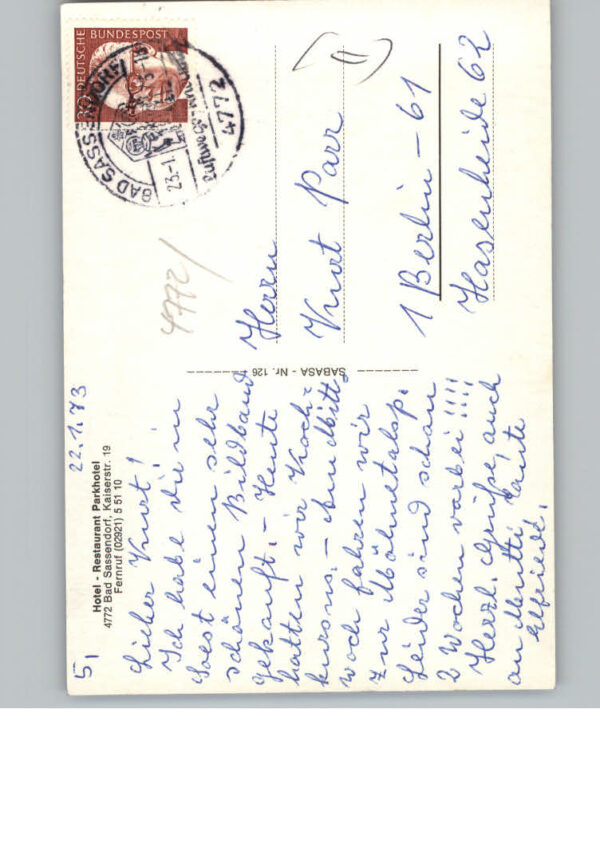 5)
22.1.73
Hotel - Restaurant Parkhotel
4772 Bad Sassendorf, Kaiserstr. 19
Fernruf (02921) 5 51 10
Lieber Kurt!
Ich habe Dir in
Soest einen sehr
schönen Bildband
gekauft. - Heute
hatten wir Koch-
kursus. - Am Mitt-
woch fahren wir
zur Möhnetalsp.
Leider sind schon
2 Wochen vorbei!!!!
Herzl. Grüße, auch
an Mutti, Tante
Elfriede.
SABASA - Nr. 126
DEUTSCHE BUNDESPOST
30
BAD SASSENDORF
23.-1.
4772
4772/
Herrn
Kurt Parr
1 Berlin - 61
Hasenheide 62